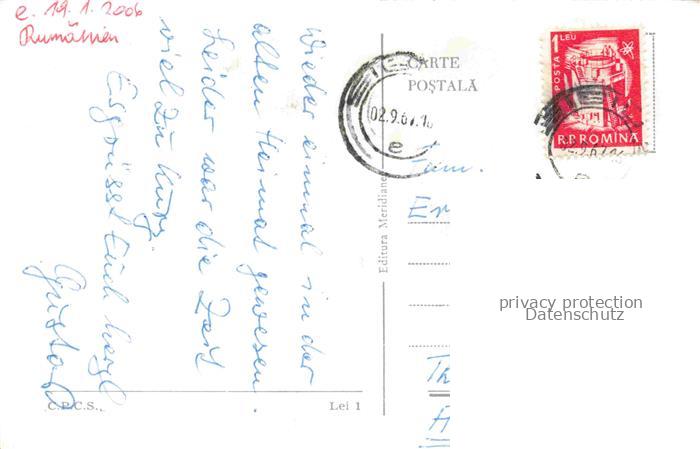 e. 19.1.2006
Rumänien
Wieder einmal in der
alten Heimat gewesen.
Leider war die Zeit
viel zu kurz.
Es grüsst Euch herzl
Gustav
CARTE
POȘTALĂ
02.9.67.1
e
1 LEU
POSTA
R.P.ROMINA
Fam.
Er
Th
Editura Meridiane
privacy protection
Datenschutz
C.P.C.S.,
Lei 1